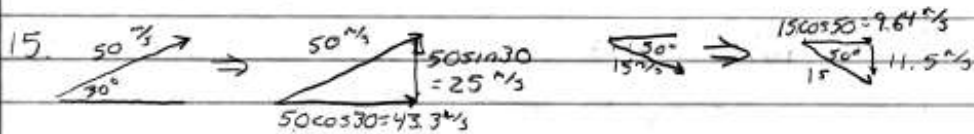 15. 50 m/s 30° ⇒ 50 m/s 50sin30 = 25 m/s 50cos30=43.3 m/s
50° 15 m/s ⇒ 15cos50=9.64 m/s 50° 15 11.5 m/s